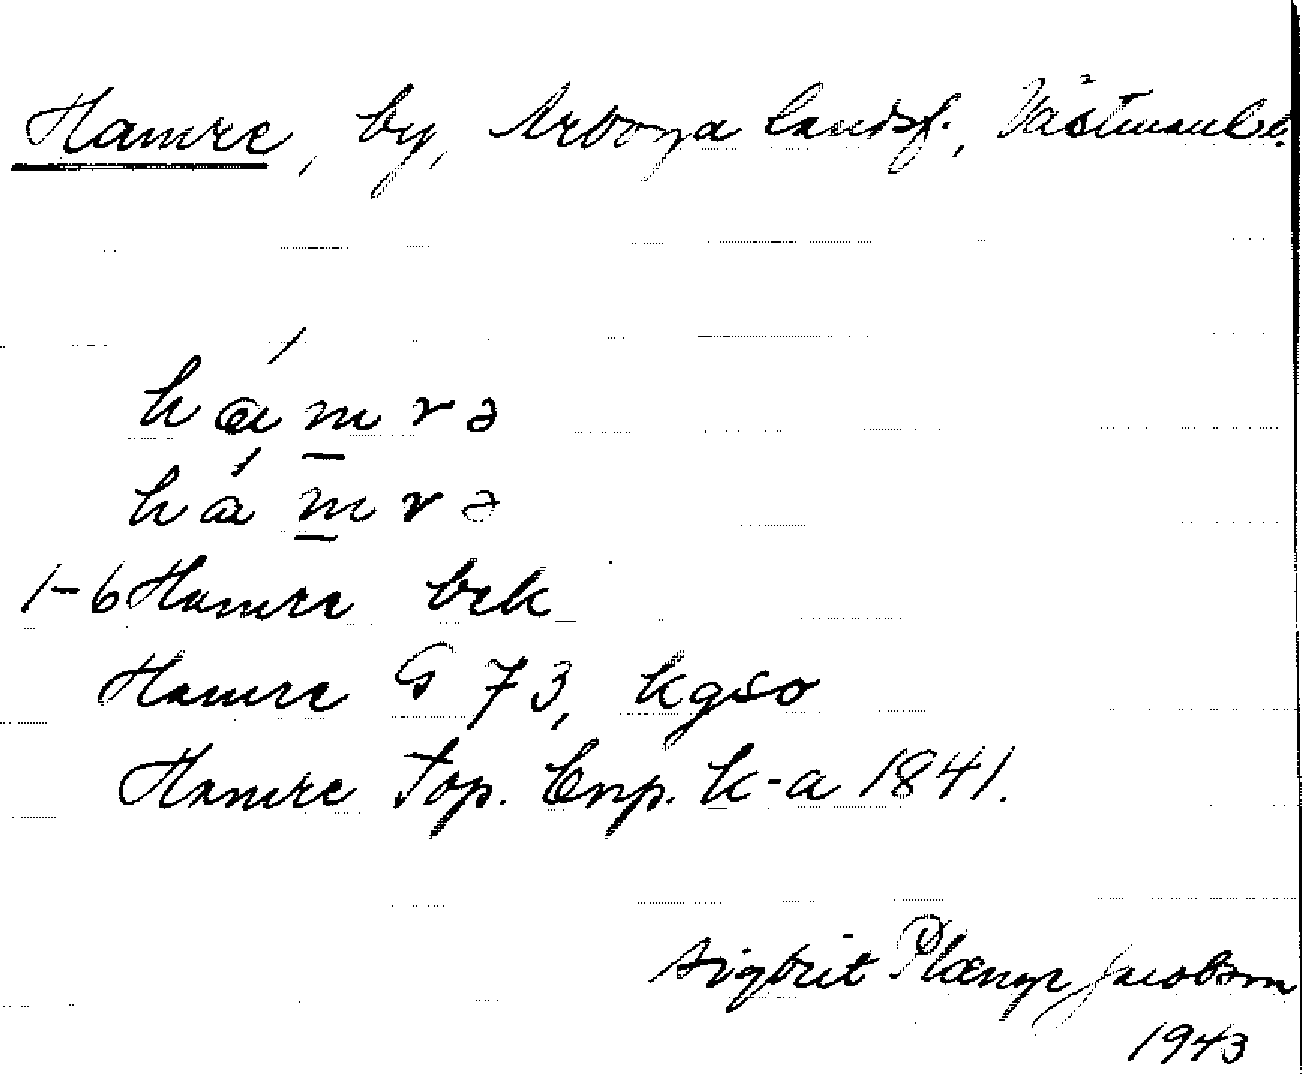 Hamre, by, Arboga landsf., Västmanl.
hámrə
hámrə
1-6 Hamre bek
Hamre G 73, kgso
Hamre Top. Corp. k-a 1841.
Sigbrit Plænge Jacobson
1943